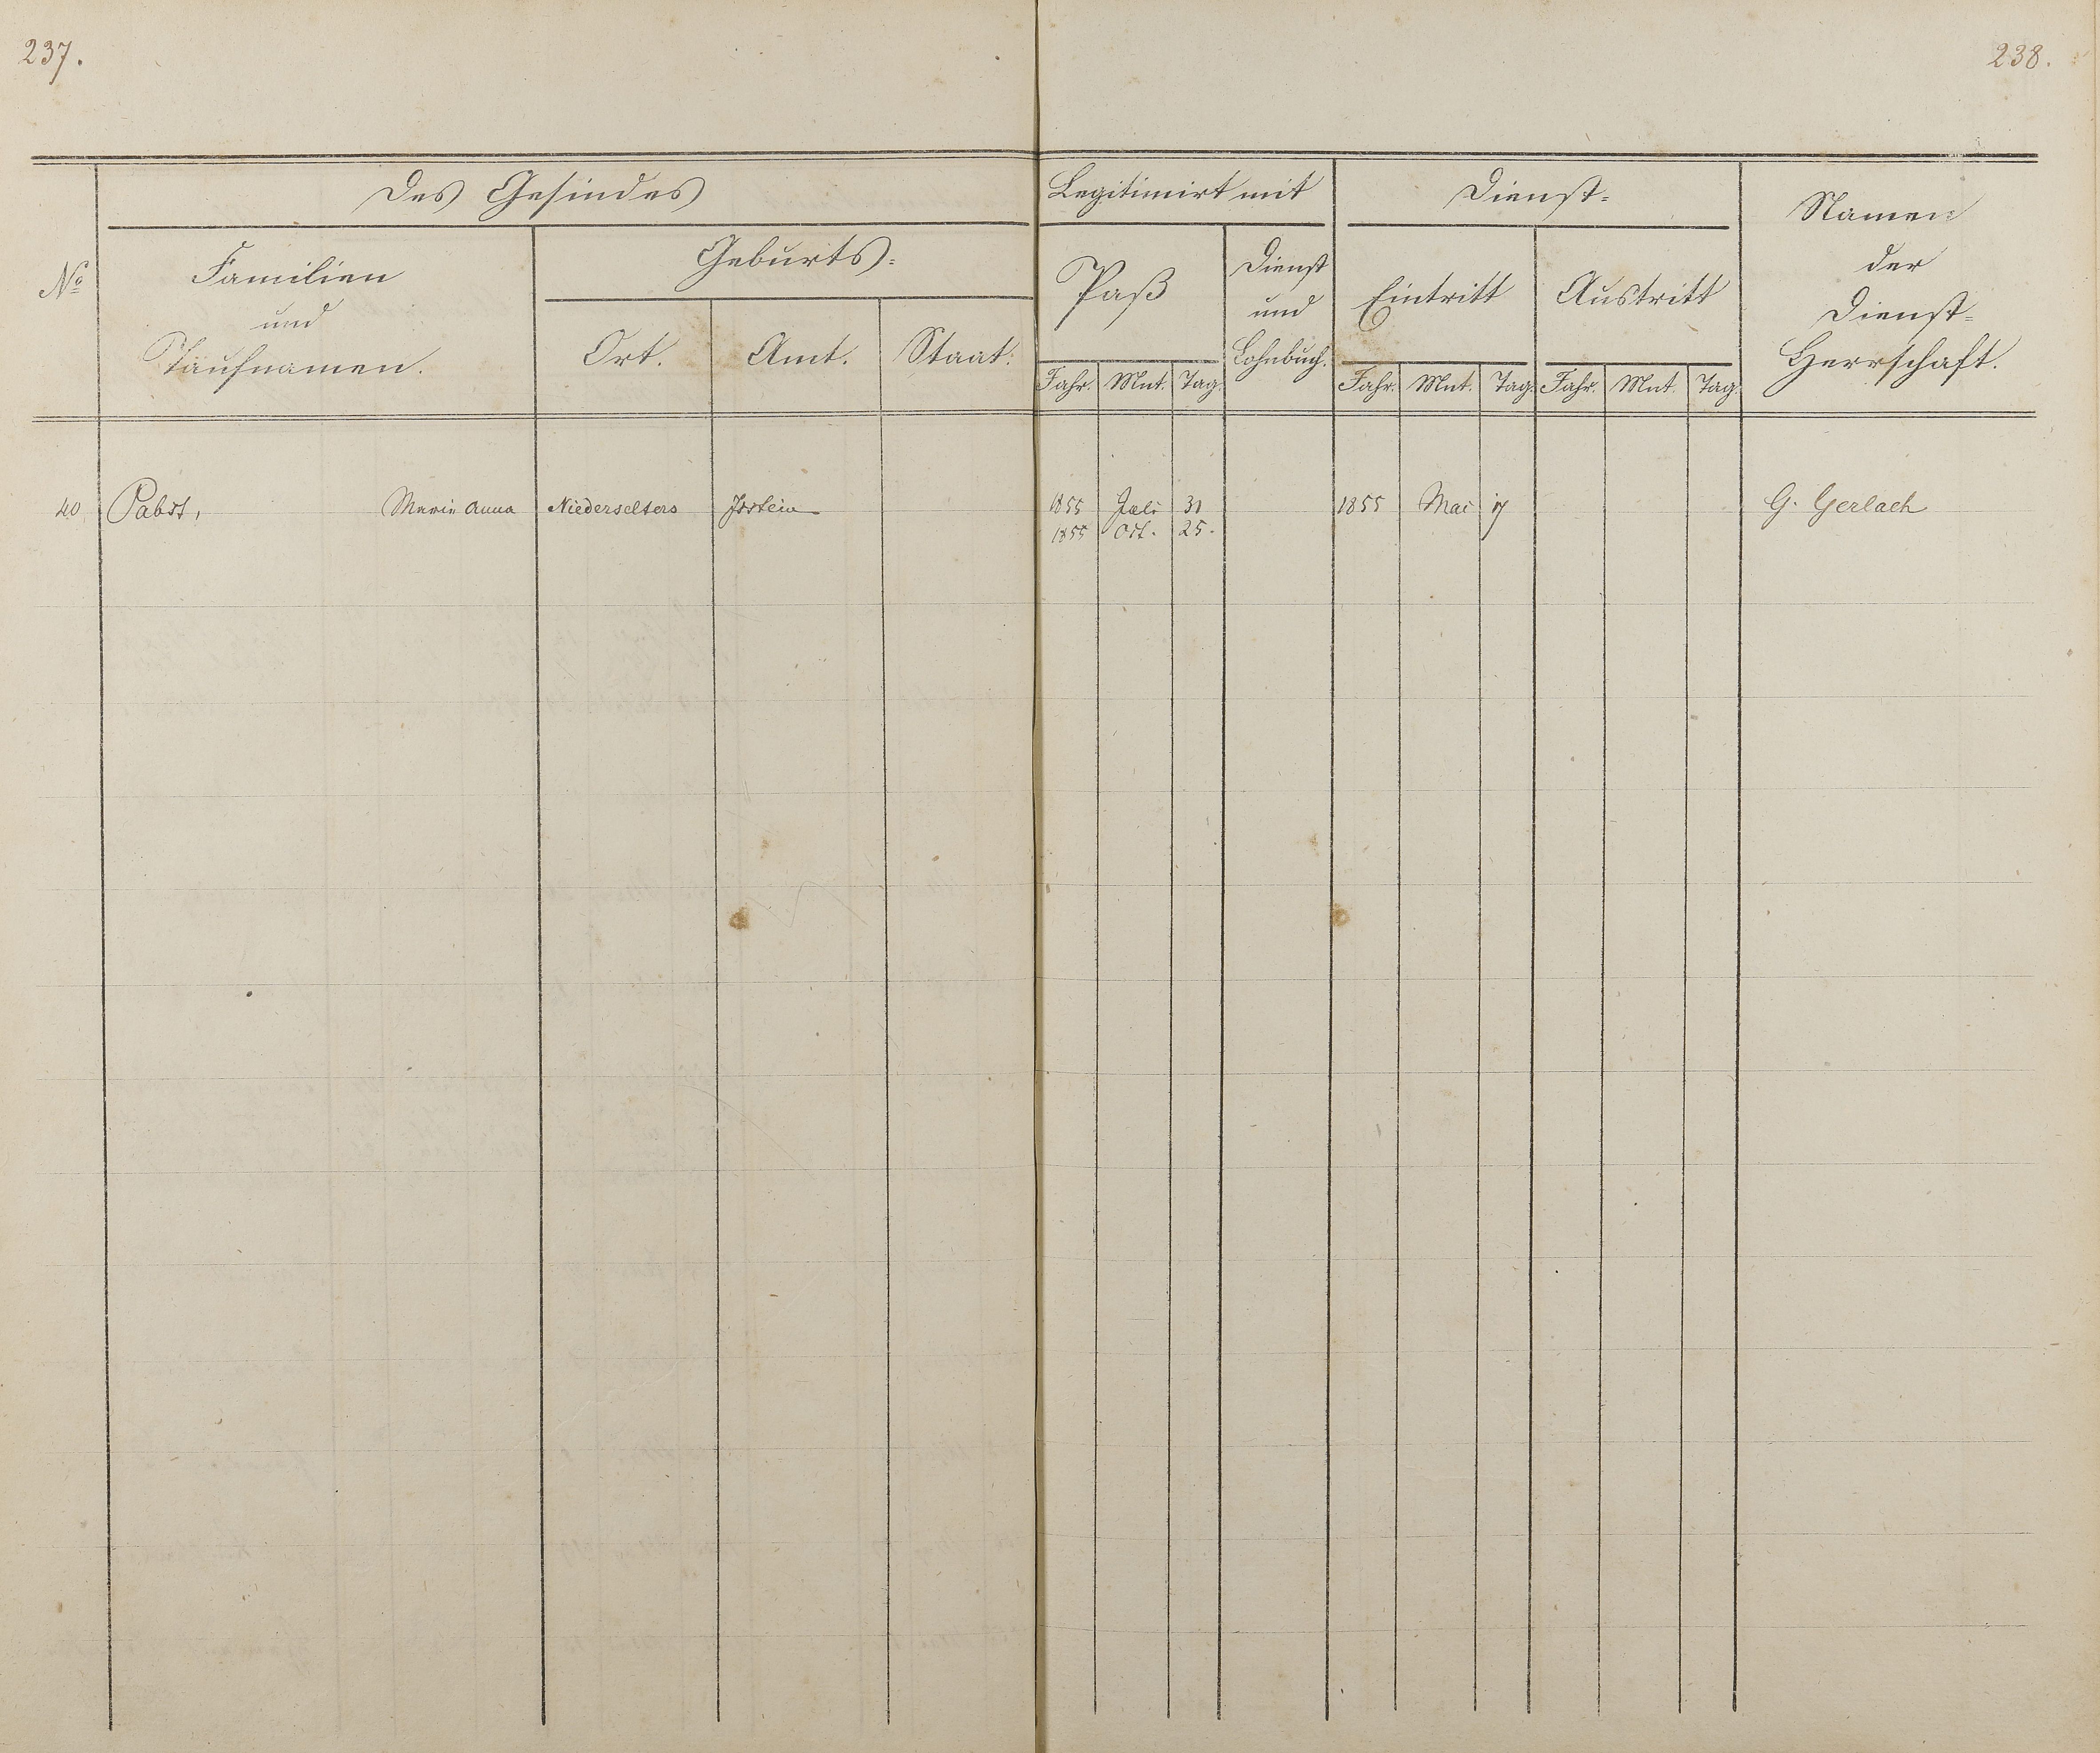 237.
238.
Des Gesindes
Legitimirt mit
Dienst-
Namen
der
Dienst-
Herrschaft.
No
Familien
und
Taufnamen.
Geburts-
Ort. Amt. Staat.
Paß
Dienst
und
Lohnbuch.
Eintritt Austritt
Jahr. Mnt. Tag. Jahr. Mnt. Tag. Jahr. Mnt. Tag.
40 Pabst, Marie Anna Niederselters Idstein 1855 Juli 31 1855 Mai G. Gerlach
1855 Oct. 25.